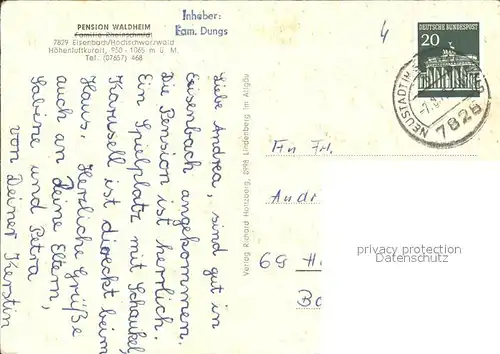 PENSION WALDHEIM
Familie Rheinschmidt
7829 Eisenbach/Hochschwarzwald
Höhenluftkurort, 950 - 1065 m ü. M.
Tel.: (07657) 468
Inhaber:
Fam. Dungs
4
DEUTSCHE BUNDESPOST
20
NEUSTADT IM
7820
Liebe Andrea, sind gut in
Eisenbach angekommen.
Die Pension ist herrlich.
Ein Spielplatz mit Schaukel,
Karusell ist direckt beim
Haus. Herzliche Grüße
auch an Deine Eltern,
Sabine und Petra
von Deiner Kerstin
Verlag Richard Hunzberg, 8998 Lindenberg im Allgäu
An Frl.
Andr
69 H
privacy protection
Datenschutz